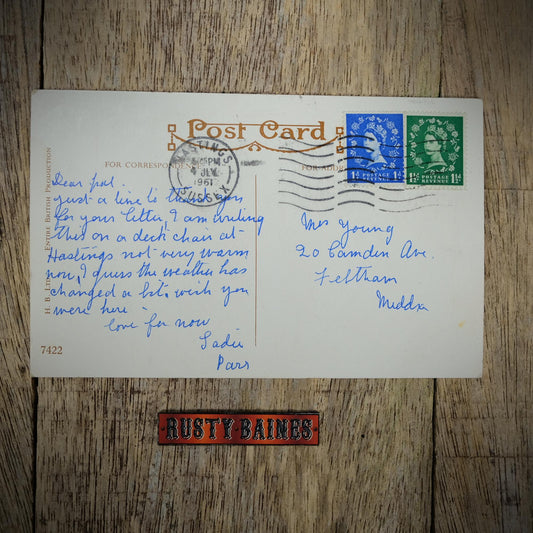 Post Card
FOR CORRESPONDENCE
FOR ADDRESS
HASTINGS
PM
4 JLY
1961
SUSSEX
1D POSTAGE REVENUE 1D
1½D POSTAGE REVENUE 1½D
Dear pal.
just a line to thank you
for your letter, I am writing
this on a deck chair at
Hastings not very warm
now, I guess the weather has
changed a bit, wish you
were here
love for now
Sadie
Mrs Young
20 Camden Ave.
Feltham
Middx
H. B. Ltd.
ENTIRE BRITISH PRODUCTION
7422
RUSTY·BAINES